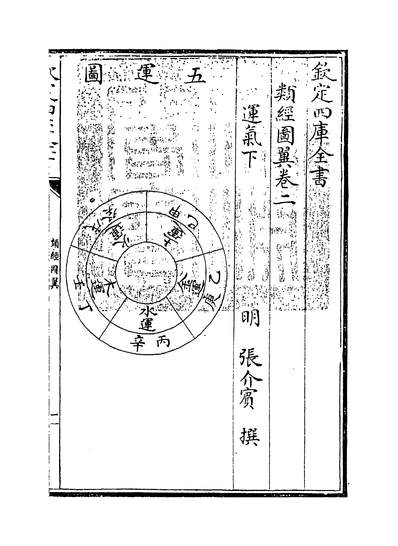 欽定四庫全書
類經圖翼卷二
運氣下
明 張介賓 撰
五運圖
土運
甲己
金運
乙庚
水運
丙辛
木運
丁壬
火運
戊癸
類經圖翼